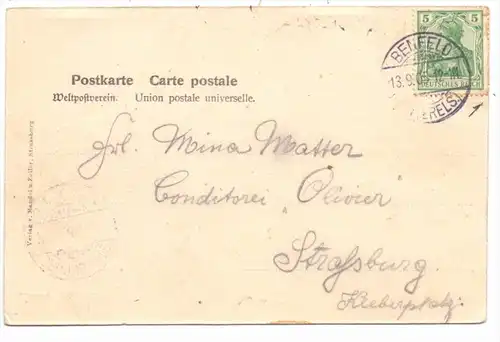 5 5
DEUTSCHES REICH
BENFELD
13.9.
Postkarte Carte postale
Weltpostverein. Union postale universelle.
Frl. Mina Matter
Conditorei "Olivier"
Straßburg
Kleberplatz.